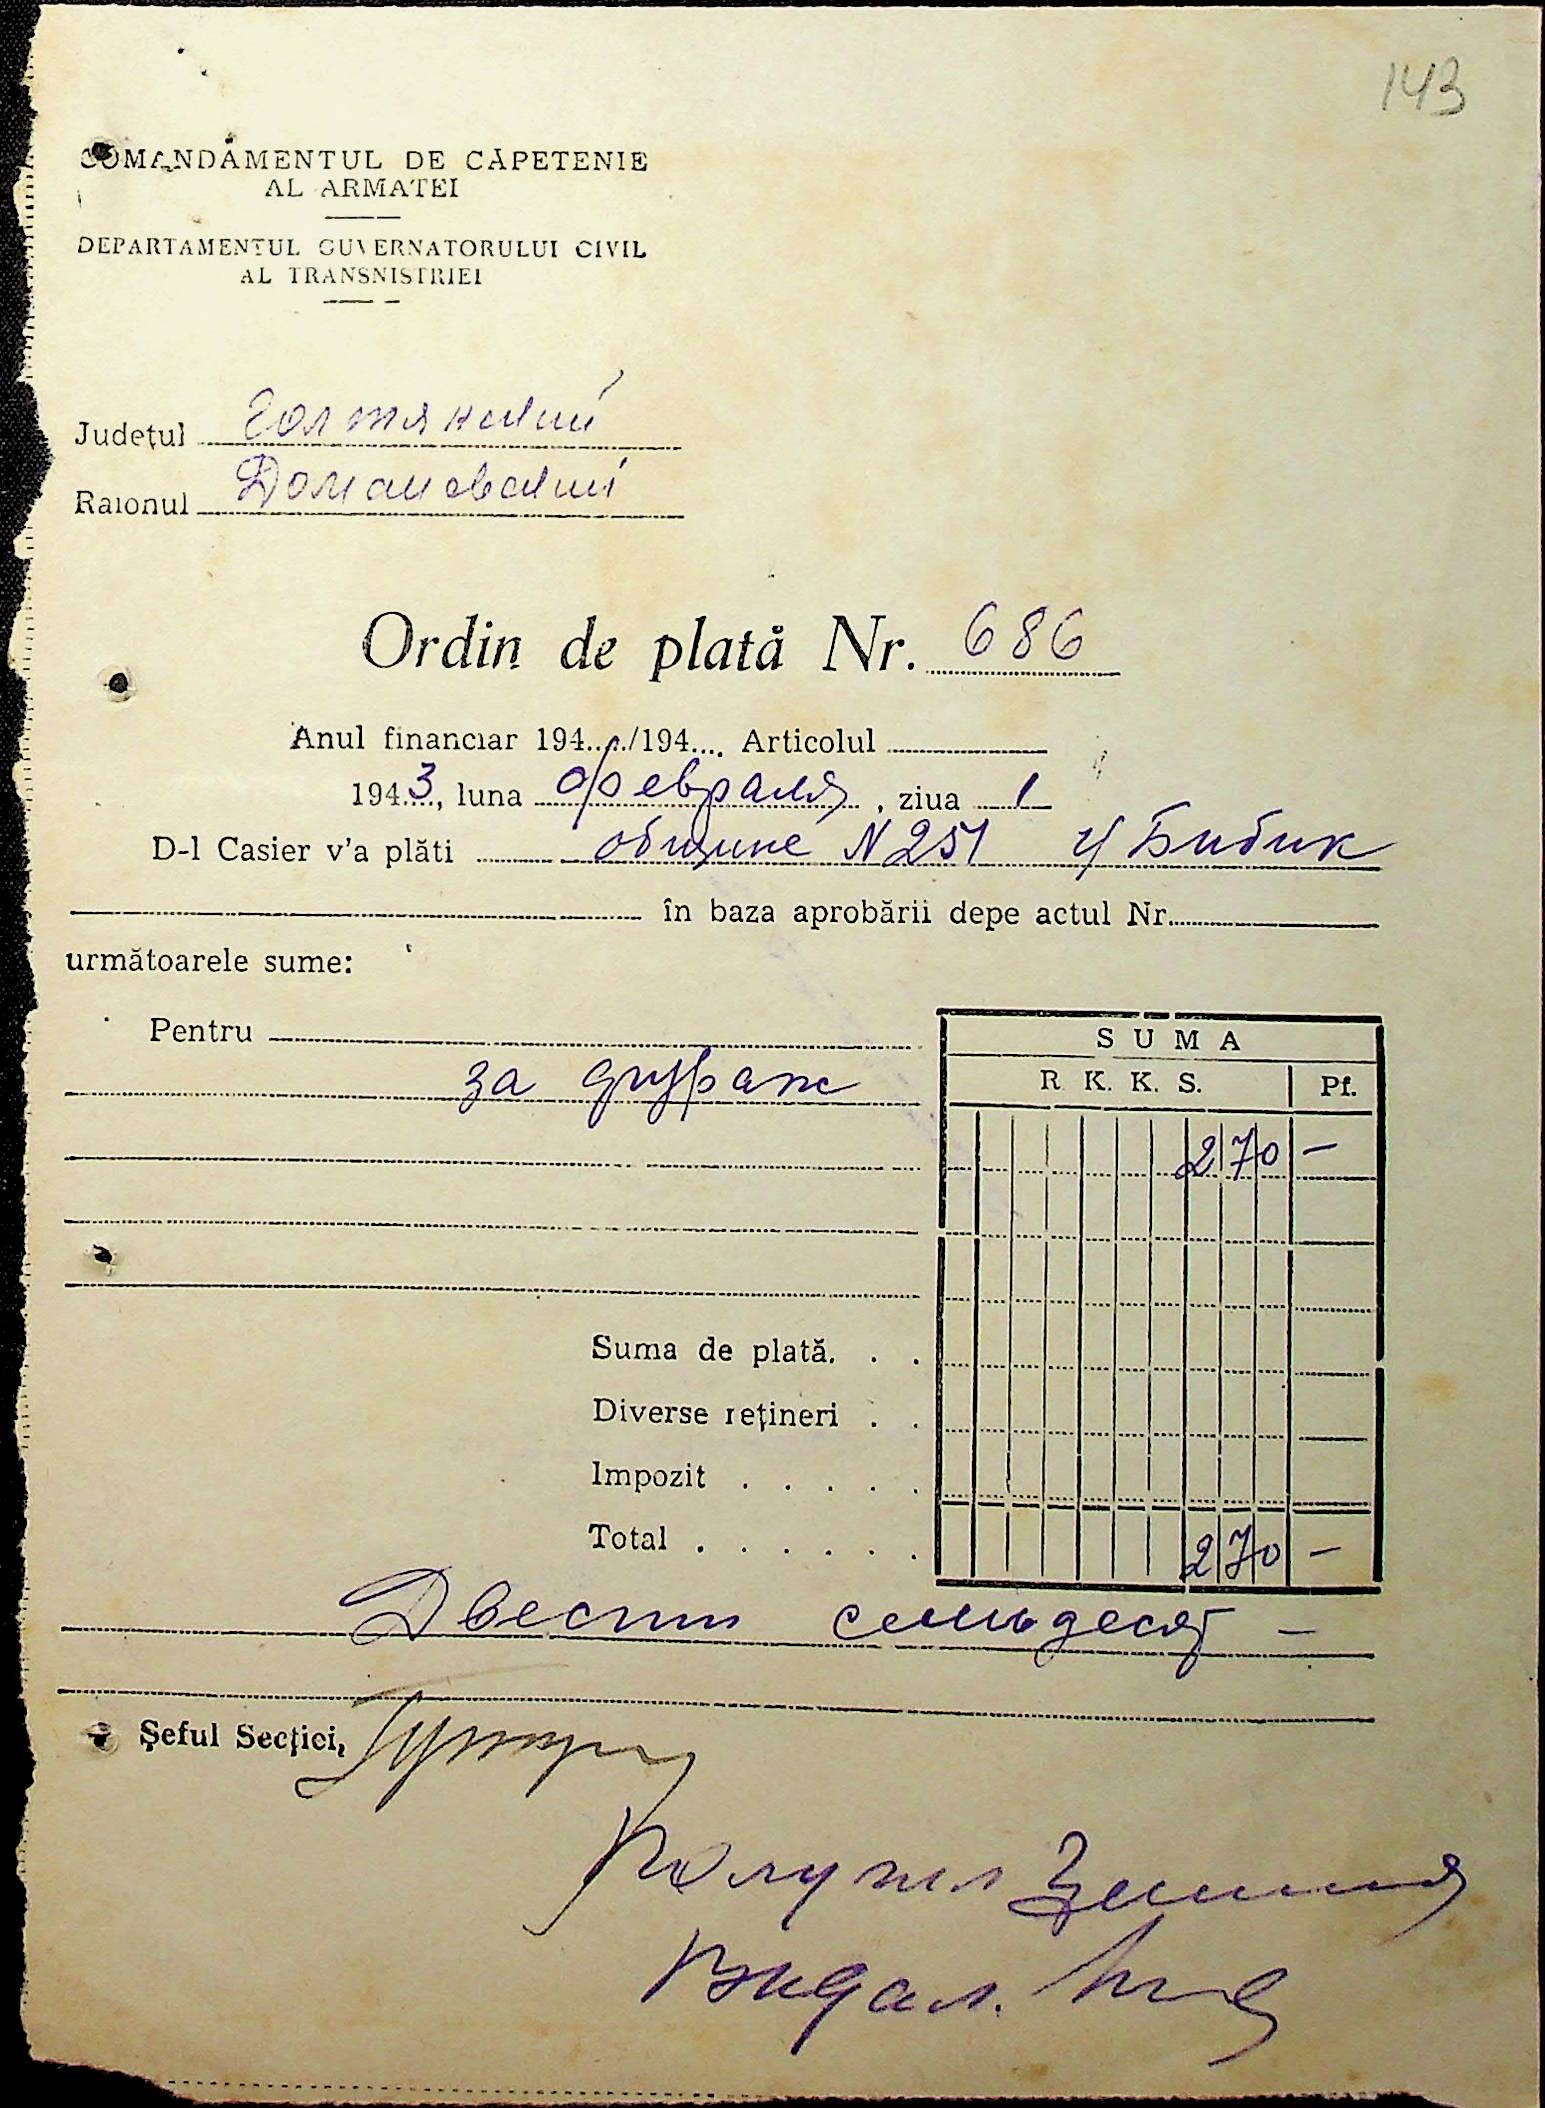 143
COMANDAMENTUL DE CAPETENIE
AL ARMATEI
DEPARTAMENTUL GUVERNATORULUI CIVIL
AL TRANSNISTRIEI
Județul Голтянский
Raionul Доманевский
Ordin de plată Nr. 686
Anul financiar 194..../194.... Articolul
1943, luna февраля, ziua 1
D-l Casier v'a plăti общине N 251 Бибик
în baza aprobării depe actul Nr.
următoarele sume:
Pentru
SUMA
R. K. K. S. Pf.
за фураж
270 —
Suma de plată. . .
Diverse rețineri . .
Impozit . . . . .
Total . . . . . . 270 —
Двести семьдесят —
Șeful Secției,
Получил
Выдал.